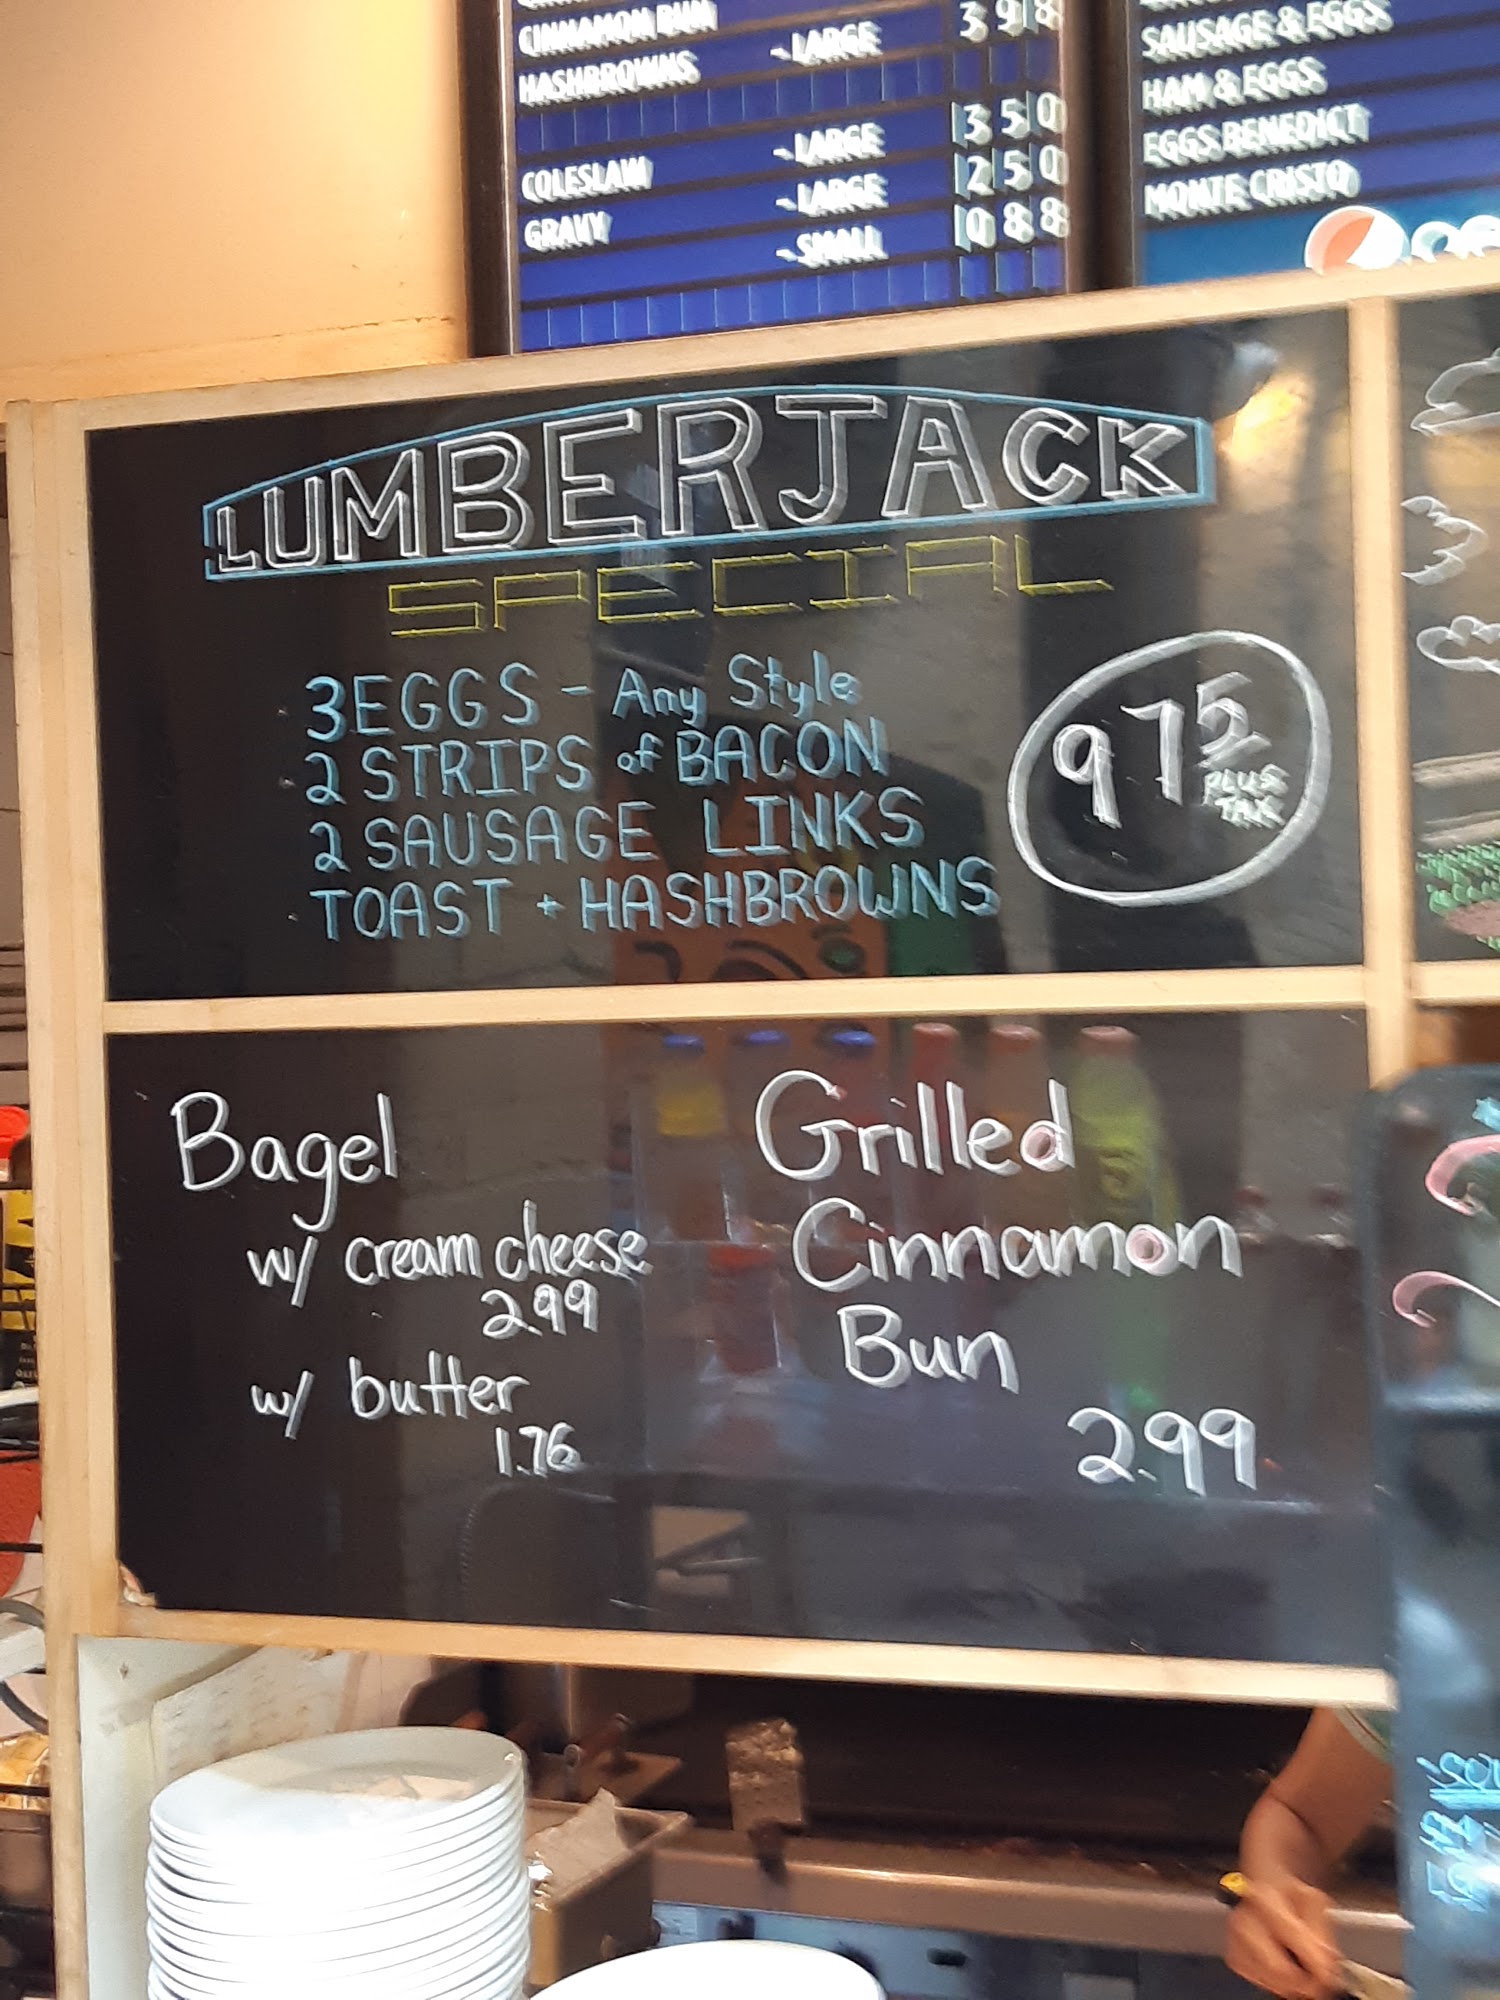 CINNAMON BUN
- LARGE 3 9 8
HASHBROWNS
- LARGE 3 5 0
COLESLAW - LARGE 2 5 0
GRAVY - SMALL 0 8 8
SAUSAGE & EGGS
HAM & EGGS
EGGS BENEDICT
MONTE CRISTO
LUMBERJACK
SPECIAL
3 EGGS - Any Style
2 STRIPS of BACON
2 SAUSAGE LINKS
TOAST + HASHBROWNS
975
PLUS
TAX
Bagel
w/ cream cheese
2.99
w/ butter
1.76
Grilled
Cinnamon
Bun
2.99